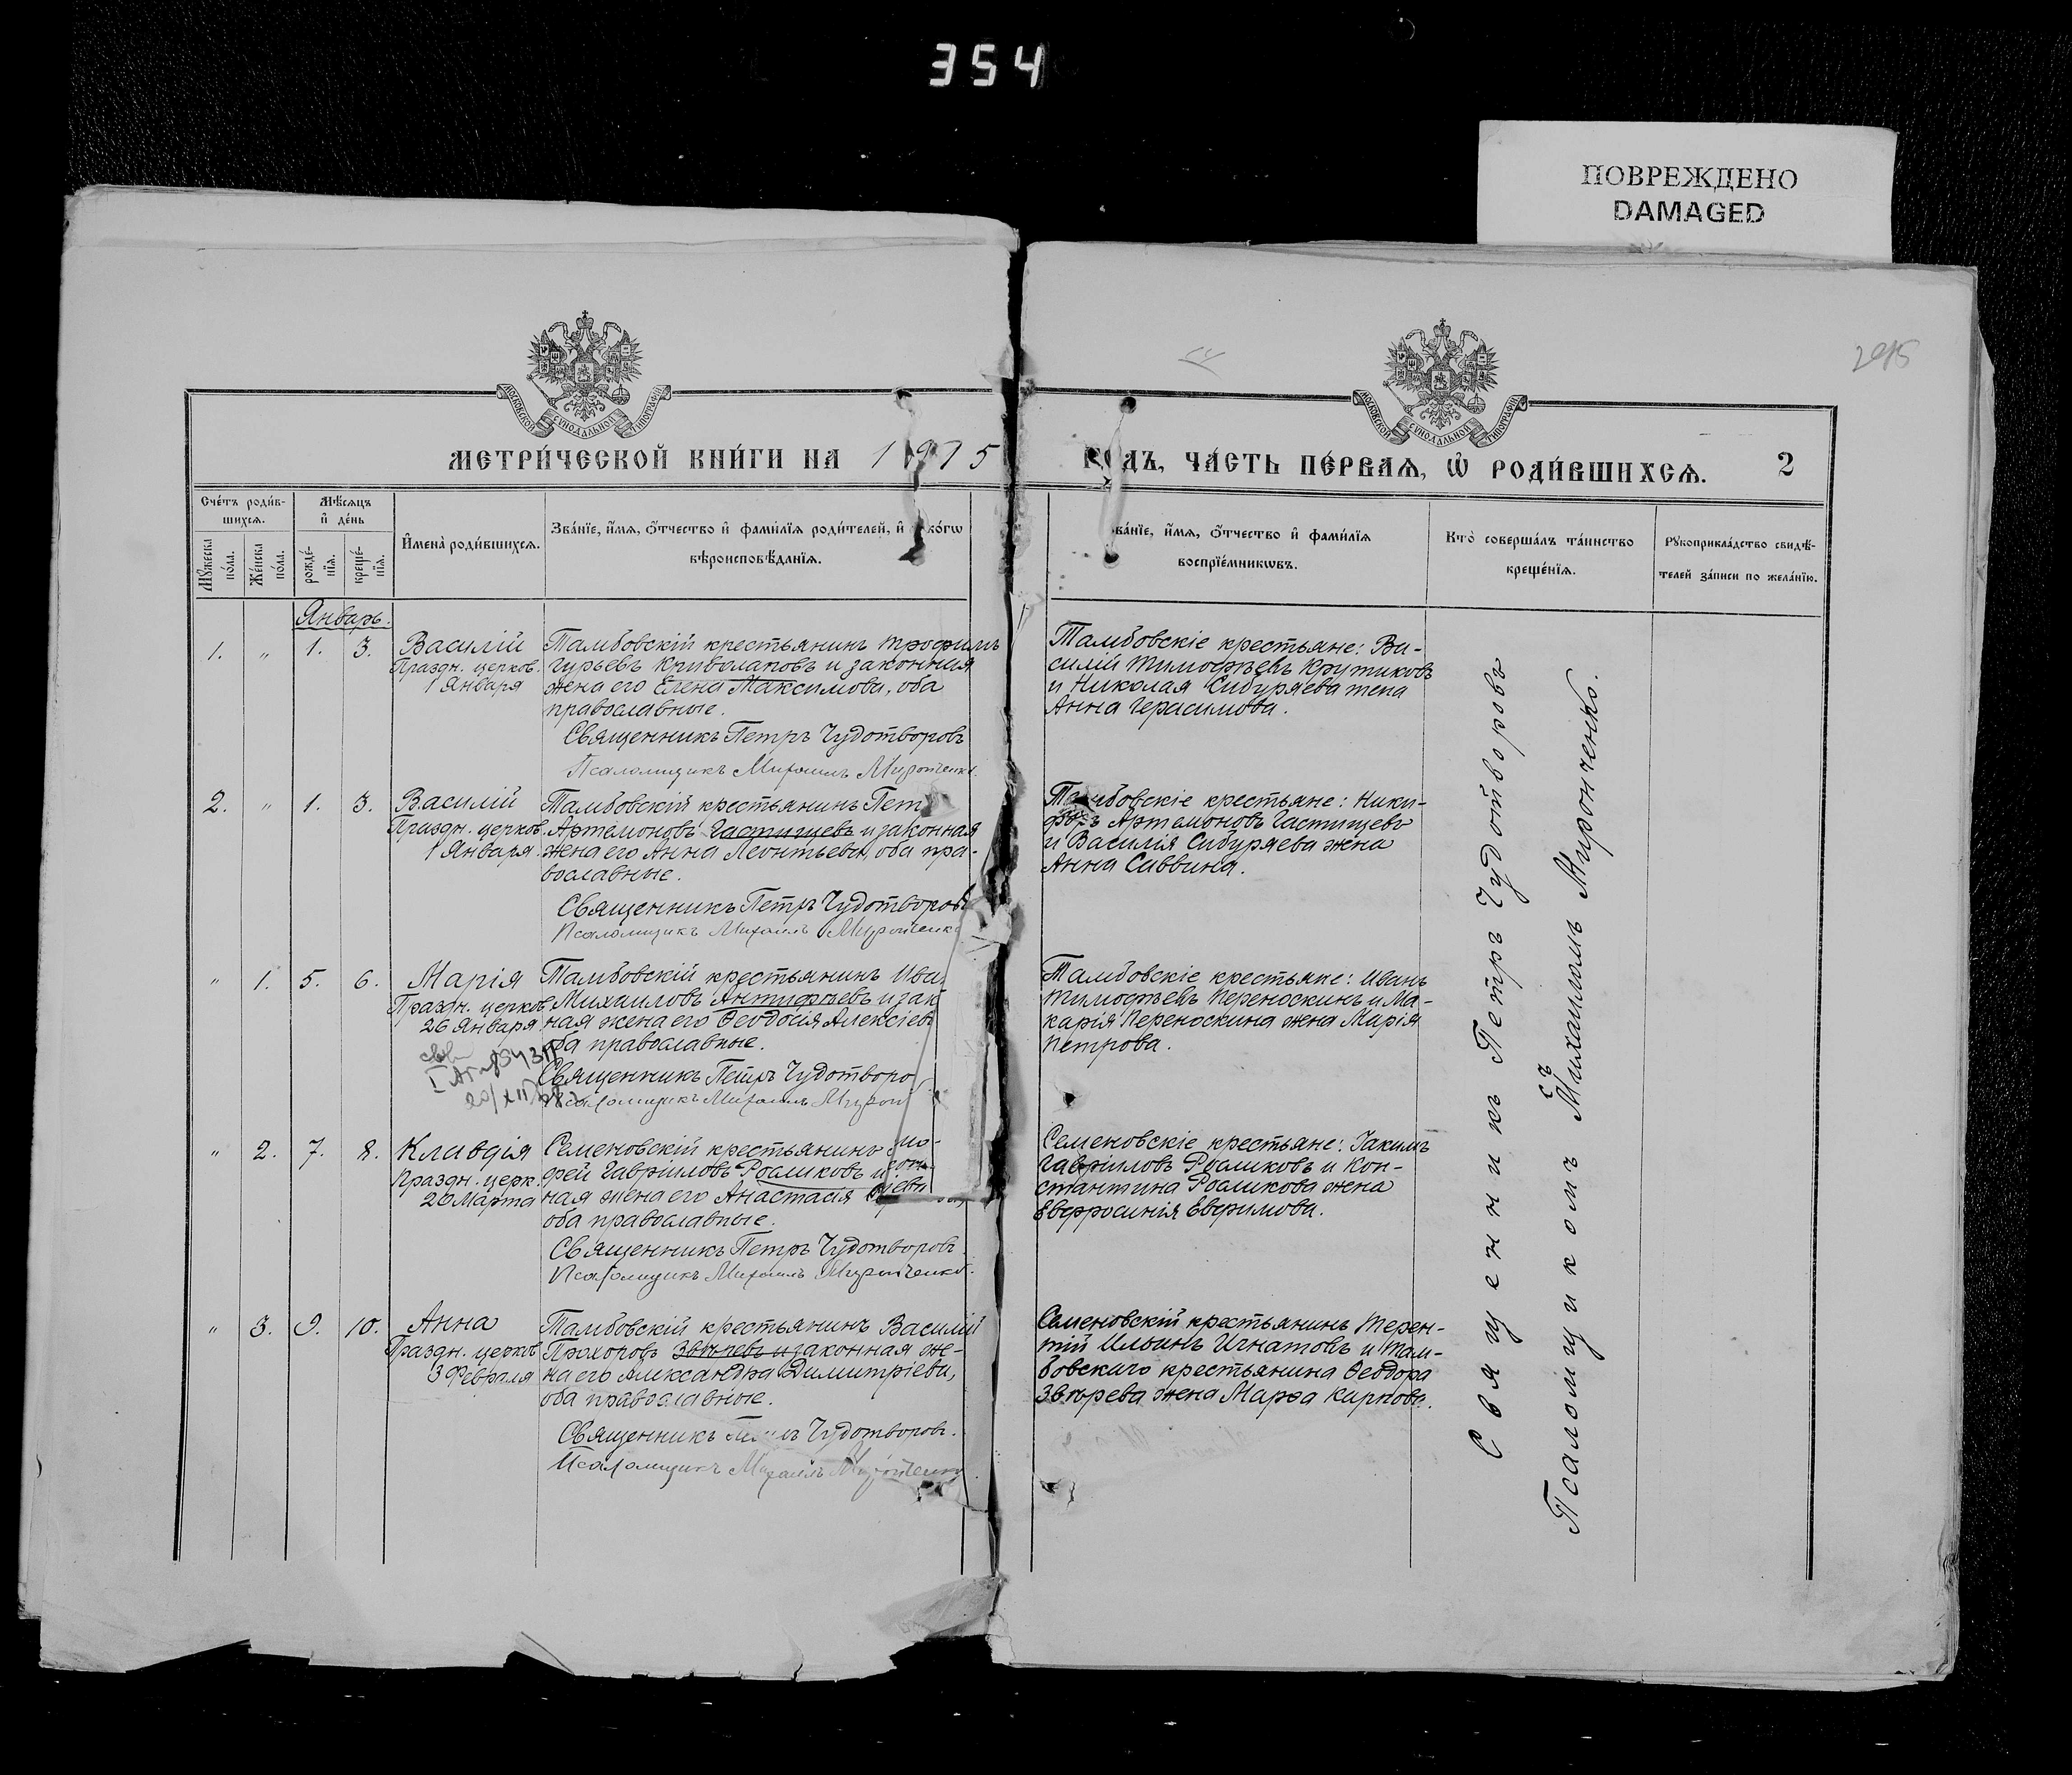 354
ПОВРЕЖДЕНО
DAMAGED
МОСКОВСКОЙ СѴНОДАЛЬНОЙ ТИПОГРАФІИ
МОСКОВСКОЙ СѴНОДАЛЬНОЙ ТИПОГРАФІИ
МЕТРИ́ЧЕСКОЙ КНИ́ГИ НА 1915
ГОДЪ, ЧА́СТЬ ПЕ́РВАѦ, Ѡ РОДИ́ВШИХСѦ. 2
Сче́тъ роди́в-
шихсѧ.
Мужеска по́ла.
Же́нска по́ла.
Мѣ́сѧцъ
и де́нь
рожде́-нїѧ.
креще́-нїѧ.
Имена̀ роди́вшихсѧ.
Зва́нїе, и́мѧ, о́тчество и фами́лїѧ роди́телей, и ко́гѡ
вѣроисповѣ́данїѧ.
ва́нїе, и́мѧ, о́тчество и фами́лїѧ
воспрїе́мникѡвъ.
Кто̀ соверша́лъ та́инство
креще́нїѧ.
Рукоприкла́дство свидѣ́-
телей за́писи по жела́нїю.
Январь.
1. " 1. 3.
Василій
Праздн. церков.
1 Января
Тамбовскій крестьянинъ Трофимъ
Гурьевъ Криволаповъ и законная
жена его Елена Максимова, оба
православные.
Священникъ Петръ Чудотворовъ
Псаломщикъ Михаилъ Миронченко.
Тамбовскіе крестьяне: Ва-
силій Тимофѣевъ Крутиковъ
и Николая Сибуряева жена
Анна Герасимова.
2. " 1. 3.
Василій
Праздн. церков.
1 Января
Тамбовскій крестьянинъ Петръ
Артемоновъ Частищевъ и законная
жена его Анна Леонтьева, оба пра-
вославные.
Священникъ Петръ Чудотворовъ
Псаломщикъ Михаилъ Миронченко
Тамбовскіе крестьяне: Ники-
форъ Артемоновъ Частищевъ
и Василія Сибуряева жена
Анна Саввина.
" 1. 5. 6.
Марія
Праздн. церков.
26 Января
Тамбовскій крестьянинъ Ива
Михаиловъ Антифѣевъ и зак
ная жена его Ѳеодосія Алексіев
оба православные.
Священникъ Петръ Чудотворо
Псаломщикъ Михаилъ Мирон
Тамбовскіе крестьяне: Иванъ
Тимофѣевъ Переноскинъ и Ма-
карія Переноскина жена Марія
Петрова.
" 2. 7. 8.
Клавдія
Праздн. церк.
26 Марта
Семеновскій крестьянинъ
фей Гавріиловъ Росликовъ и
ная жена его Анастасія
оба православные.
Священникъ Петръ Чудотворовъ.
Псаломщикъ Михаилъ Миронченко.
Семеновскіе крестьяне: Іакимъ
Гавріиловъ Росликовъ и Кон-
стантина Росликова жена
Евфросинія Евфимова.
" 3. 9. 10.
Анна
Праздн. церков
3 Февраля
Тамбовскій крестьянинъ Василій
Прохоровъ Звѣревъ и законная же-
на его Александра Димитріева,
оба православные.
Священникъ Петръ Чудотворовъ.
Псаломщикъ Михаилъ Миронченко
Семеновскій крестьянинъ Терен-
тій Ильинъ Игнатовъ и Там-
бовскаго крестьянина Ѳеодора
Звѣрева жена Марѳа Карпова.
Священникъ Петръ Чудотворовъ
съ
Псаломщикомъ Михаиломъ Миронченко.